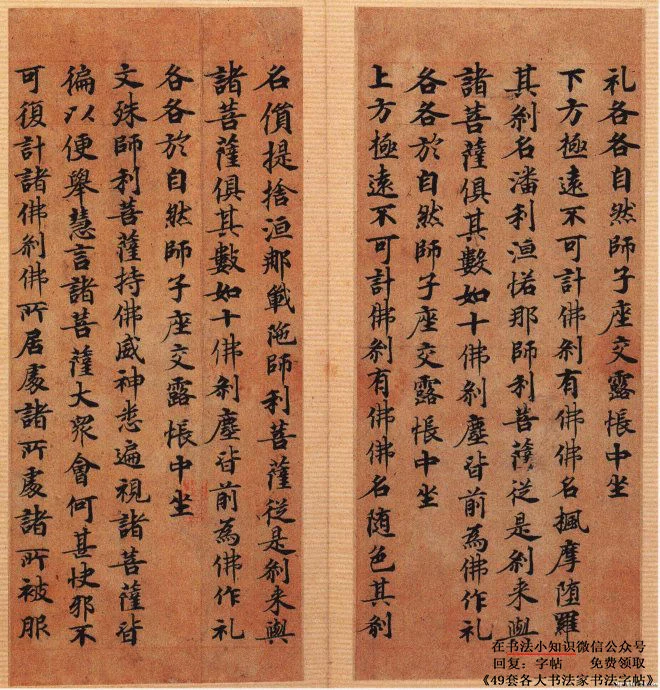 礼各各自然師子座交露帳中坐
下方極遠不可計佛剎有佛佛名楓摩堕羅
其剎名潘利洹惒那師利菩薩從是剎来與
諸菩薩俱其數如十佛剎塵皆前為佛作礼
各各於自然師子座交露帳中坐
上方極遠不可計佛剎有佛佛名随色其剎
名償提捨洹那陁師利菩薩従是剎来與
諸菩薩俱其數如十佛剎塵皆前為佛作礼
各各於自然師子座交露帳中坐
文殊師利菩薩持佛威神悉遍視諸菩薩皆
徧以便舉慧言諸菩薩大眾會何甚快邪不
可復計諸佛剎佛所居處諸所處諸所被服
在书法小知识微信公众号
回复：字帖 免费领取
《49套各大书法家书法字帖》